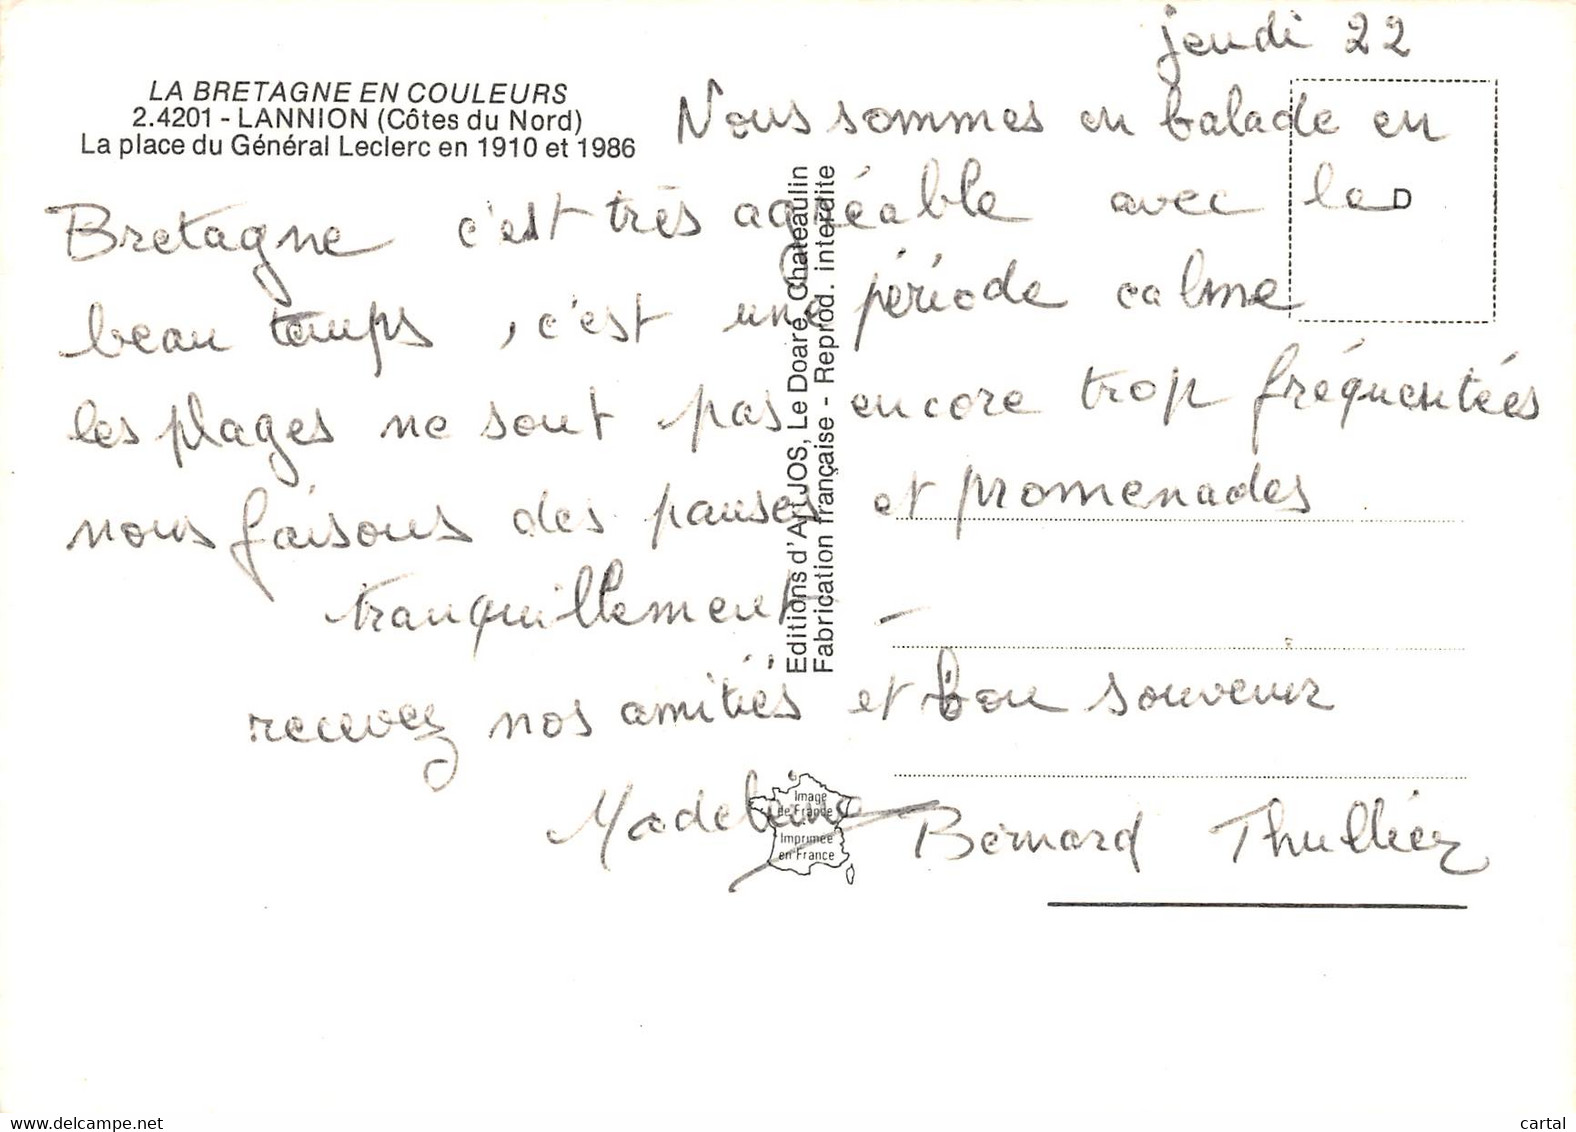 jeudi 22
LA BRETAGNE EN COULEURS
2.4201 - LANNION (Côtes du Nord)
La place du Général Leclerc en 1910 et 1986
Nous sommes en balade en
Bretagne c'est très agréable avec le
D
beau temps, c'est une période calme
les plages ne sont pas encore trop fréquentées
nous faisons des pauses et promenades
tranquillement -
recevez nos amitiés et bon souvenir
Madeleine Bernard Thullier
Editions d'Art JOS, Le Doaré, Chateaulin
Fabrication française - Reprod. interdite
Image
de France
Imprimée
en France
delcampe.net
cartal